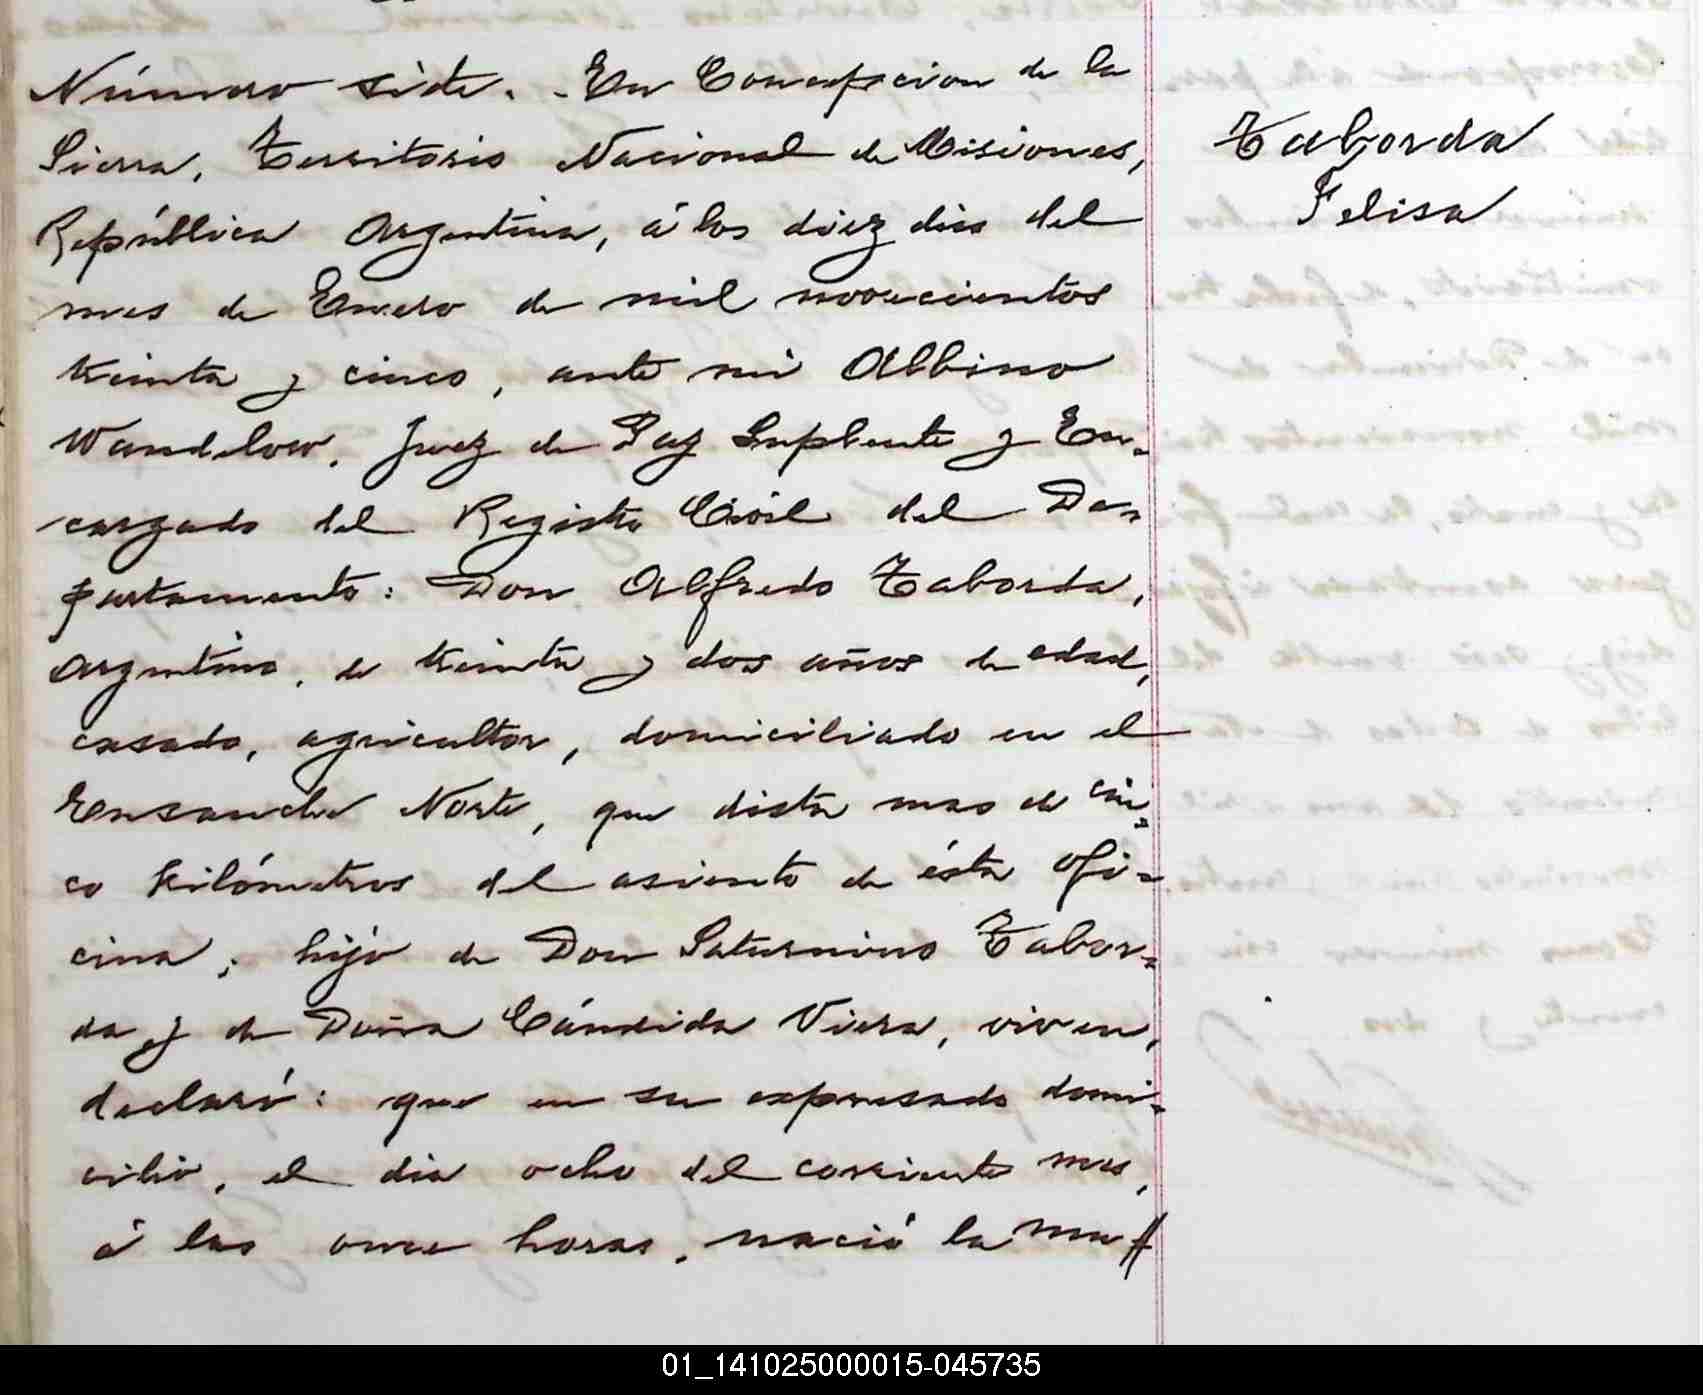 Número siete. - En Concepcion de la
Sierra, Territorio Nacional de Misiones,
República Argentina, á los diez dias del
mes de Enero de mil novecientos
treinta y cinco, ante mi Albino
Wandelow, Juez de Paz Suplente y En-
cargado del Registro Civil del De-
partamento: Don Alfredo Taborda,
argentino, de treinta y dos años de edad,
casado, agricultor, domiciliado en el
Ensanche Norte, que dista mas de cin-
co kilómetros del asiento de ésta ofi-
cina, hijo de Don Saturnino Tabor-
da y de Doña Cándida Viera, viven,
declaró: que en su expresado domi-
cilio, el dia ocho del corriente mes,
á las once horas, nació la mu//
Taborda
Felisa
01_141025000015-045735